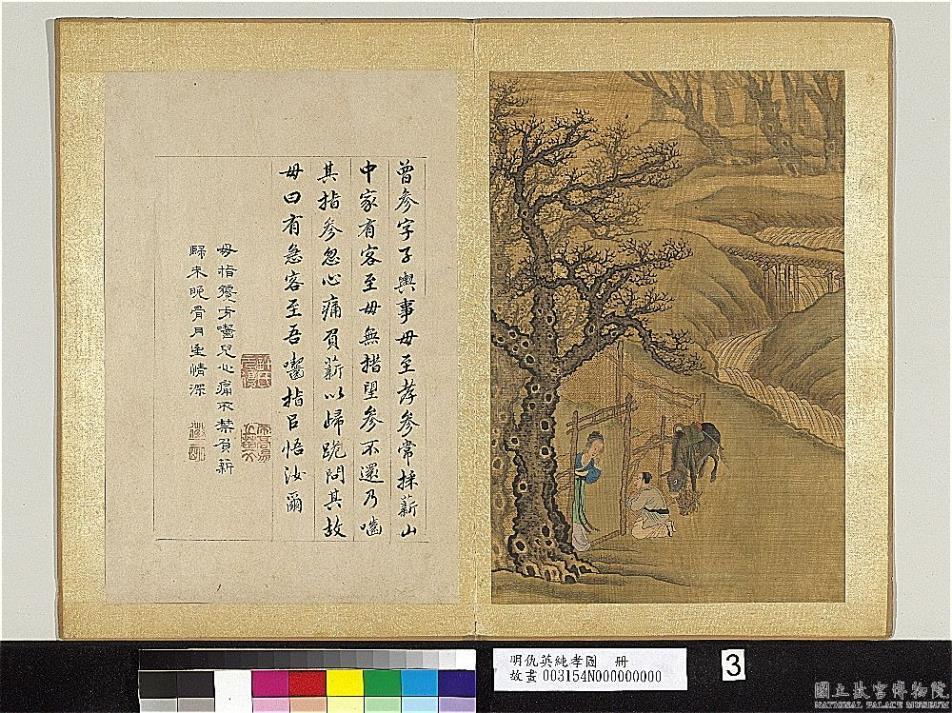 曾參字子輿事母至孝參常採薪山
中家有客至母無措望參不還乃嚙
其指參忽心痛負薪以歸跪問其故
母曰有急客至吾嚙指以悟汝爾
母指纔方嚙兒心痛不禁負薪
歸未晚骨肉至情深
明仇英純孝圖 冊
故畫 003154N000000000
3
國立故宮博物院
NATIONAL PALACE MUSEUM